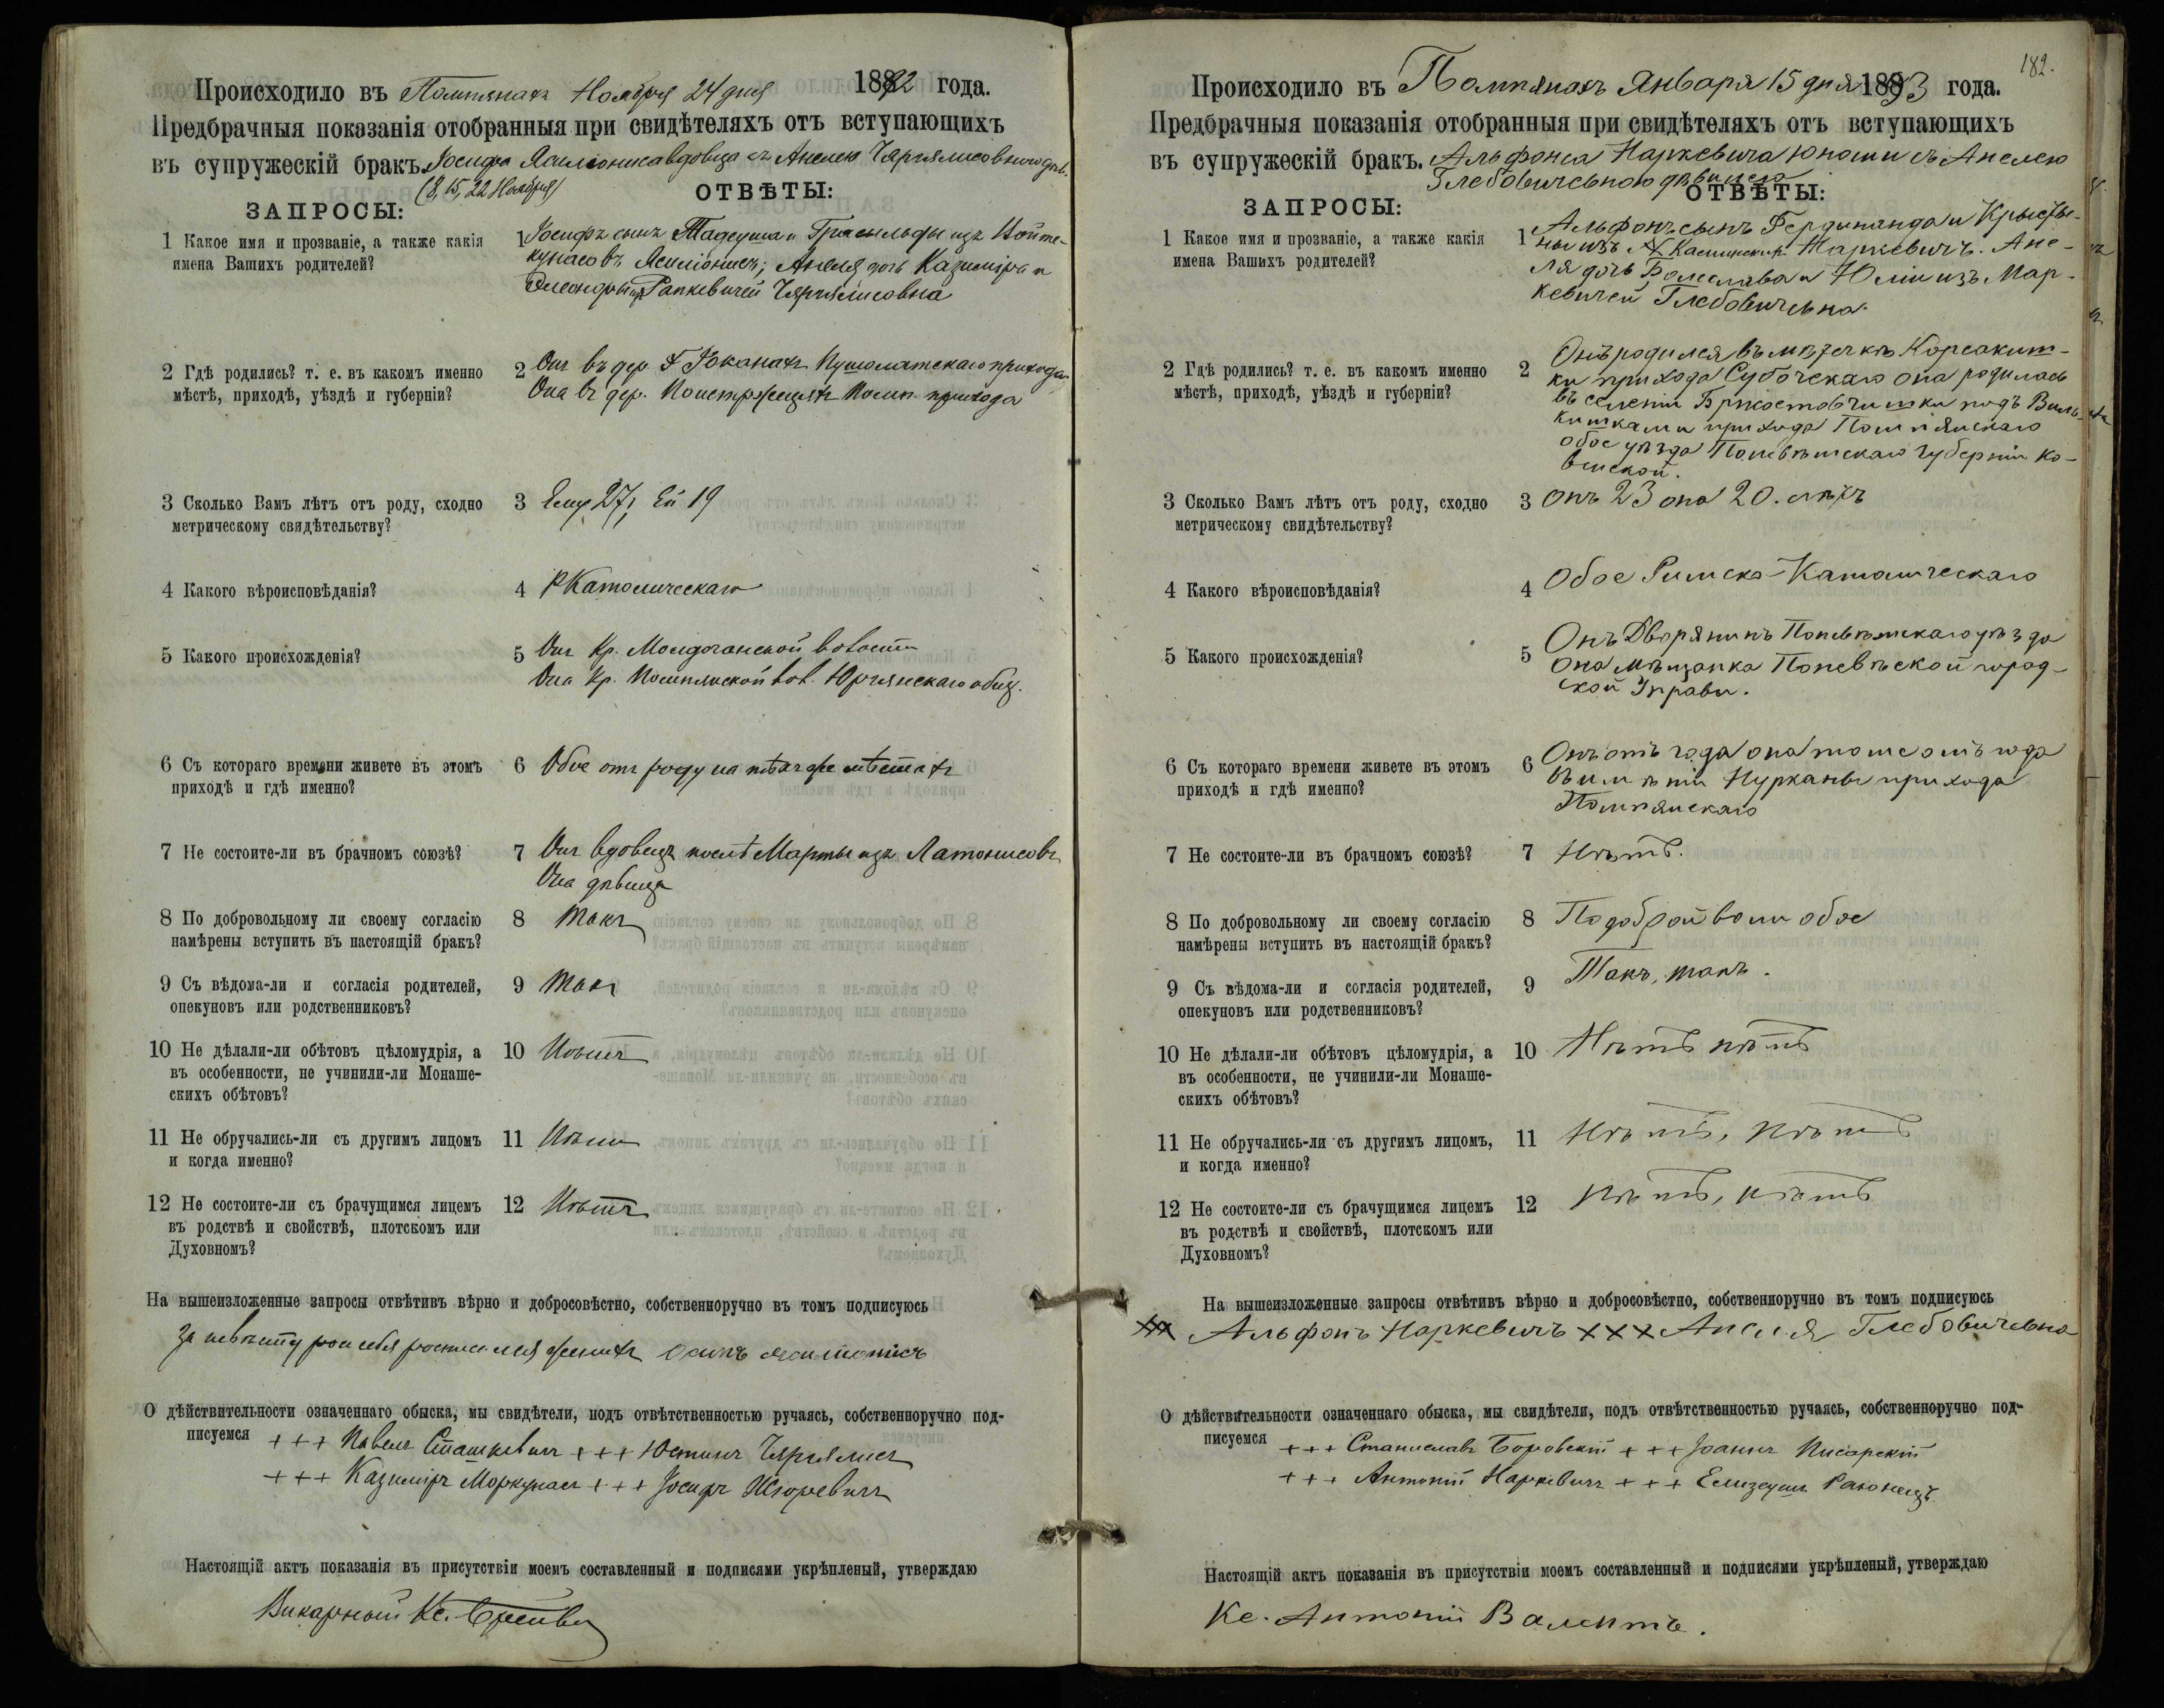 Происходило въ Помпянахъ Ноября 24 дня 1892 года.
Предбрачныя показанія отобранныя при свидѣтеляхъ отъ вступающихъ
въ супружескій бракъ. Іосифа Ясиліониса вдовца съ Анелею
(8, 15, 22 Ноября)
ЗАПРОСЫ:
ОТВѢТЫ:
1 Какое имя и прозваніе, а также какія
имена Вашихъ родителей?
1 Іосифъ сынъ Тадеуша и Гризельды изъ
Ясиліонисъ; Анеля дочь Казиміра и
Элеоноры изъ Рапкевичей
2 Гдѣ родились? т. е. въ какомъ именно
мѣстѣ, приходѣ, уѣздѣ и губерніи?
2 Онъ въ дер. Пушолатскаго прихода
Она въ дер. Помп. прихода
3 Сколько Вамъ лѣтъ отъ роду, сходно
метрическому свидѣтельству?
3 Ему 27, Ей 19
4 Какого вѣроисповѣданія?
4 Р Католическаго
5 Какого происхожденія?
5 Онъ Кр. волости
Она Кр. Помпянской вол. Юргянскаго общ.
6 Съ котораго времени живете въ этомъ
приходѣ и гдѣ именно?
6 Обое отъ роду на тѣхъ же мѣстахъ
7 Не состоите-ли въ брачномъ союзѣ?
7 Онъ вдовецъ послѣ Марты изъ Латонисовъ
Она дѣвица
8 По добровольному ли своему согласію
намѣрены вступить въ настоящій бракъ?
8 Такъ
9 Съ вѣдома-ли и согласія родителей,
опекуновъ или родственниковъ?
9 Такъ
10 Не дѣлали-ли обѣтовъ цѣломудрія, а
въ особенности, не учинили-ли Монаше-
скихъ обѣтовъ?
10 Нѣтъ
11 Не обручались-ли съ другимъ лицомъ
и когда именно?
11 Нѣтъ
12 Не состоите-ли съ брачущимся лицемъ
въ родствѣ и свойствѣ, плотскомъ или
Духовномъ?
12 Нѣтъ
На вышеизложенные запросы отвѣтивъ вѣрно и добросовѣстно, собственноручно въ томъ подписуюсь
За невѣсту себя росписался женихъ Осипъ Ясиліонисъ
О дѣйствительности означеннаго обыска, мы свидѣтели, подъ отвѣтственностью ручаясь, собственноручно под-
писуемся +++ Павелъ Сташкевичъ +++ Юстинъ
+++ Казиміръ Моркунасъ +++ Іосифъ
Настоящій актъ показанія въ присутствіи моемъ составленный и подписями укрѣпленый, утверждаю
Викарный Кс.
182.
Происходило въ Помпянахъ Января 15 дня 1893 года.
Предбрачныя показанія отобранныя при свидѣтеляхъ отъ вступающихъ
въ супружескій бракъ. Альфонса Наркевича юноши съ Анелею
Глебовичевною дѣвицею
ЗАПРОСЫ:
ОТВѢТЫ:
1 Какое имя и прозваніе, а также какія
имена Вашихъ родителей?
1 Альфонъ сынъ Фердинанда и Крысты-
ны изъ Наркевичъ. Ане-
ля дочь Болеслава и Юліи изъ Мар-
кевичей Глебовичевна.
2 Гдѣ родились? т. е. въ какомъ именно
мѣстѣ, приходѣ, уѣздѣ и губерніи?
2 Онъ родился въ мѣстечкѣ Корсакиш-
ки прихода Субочскаго она родилась
въ селеніи подъ Виль-
кишками прихода Помпянскаго
обое уѣзда Поневѣжскаго губерніи Ко-
венской.
3 Сколько Вамъ лѣтъ отъ роду, сходно
метрическому свидѣтельству?
3 онъ 23 она 20. лѣтъ
4 Какого вѣроисповѣданія?
4 Обое Римско-Католическаго
5 Какого происхожденія?
5 Онъ Дворянинъ Поневѣжскаго уѣзда
Она мѣщанка Поневѣской город-
ской Управы.
6 Съ котораго времени живете въ этомъ
приходѣ и гдѣ именно?
6 Онъ отъ года она тоже отъ года
въ имѣніи Нурканы прихода
Помпянскаго
7 Не состоите-ли въ брачномъ союзѣ?
7 Нѣтъ.
8 По добровольному ли своему согласію
намѣрены вступить въ настоящій бракъ?
8 По доброй воли обое
9 Съ вѣдома-ли и согласія родителей,
опекуновъ или родственниковъ?
9 Такъ, такъ.
10 Не дѣлали-ли обѣтовъ цѣломудрія, а
въ особенности, не учинили-ли Монаше-
скихъ обѣтовъ?
10 Нѣтъ нѣтъ
11 Не обручались-ли съ другимъ лицомъ,
и когда именно?
11 Нѣтъ, нѣтъ
12 Не состоите-ли съ брачущимся лицемъ
въ родствѣ и свойствѣ, плотскомъ или
Духовномъ?
12 нѣтъ, нѣтъ
На вышеизложенные запросы отвѣтивъ вѣрно и добросовѣстно, собственноручно въ томъ подписуюсь
Альфонъ Наркевичъ +++ Анеля Глебовичевна
О дѣйствительности означеннаго обыска, мы свидѣтели, подъ отвѣтственностью ручаясь, собственноручно под-
писуемся +++ Станиславъ Боровскій +++ Іоаннъ Писарскій
+++ Антоній Наркевичъ +++ Елизеушъ
Настоящій актъ показанія въ присутствіи моемъ составленный и подписями укрѣпленый, утверждаю
Кс. Антоній Валентъ.